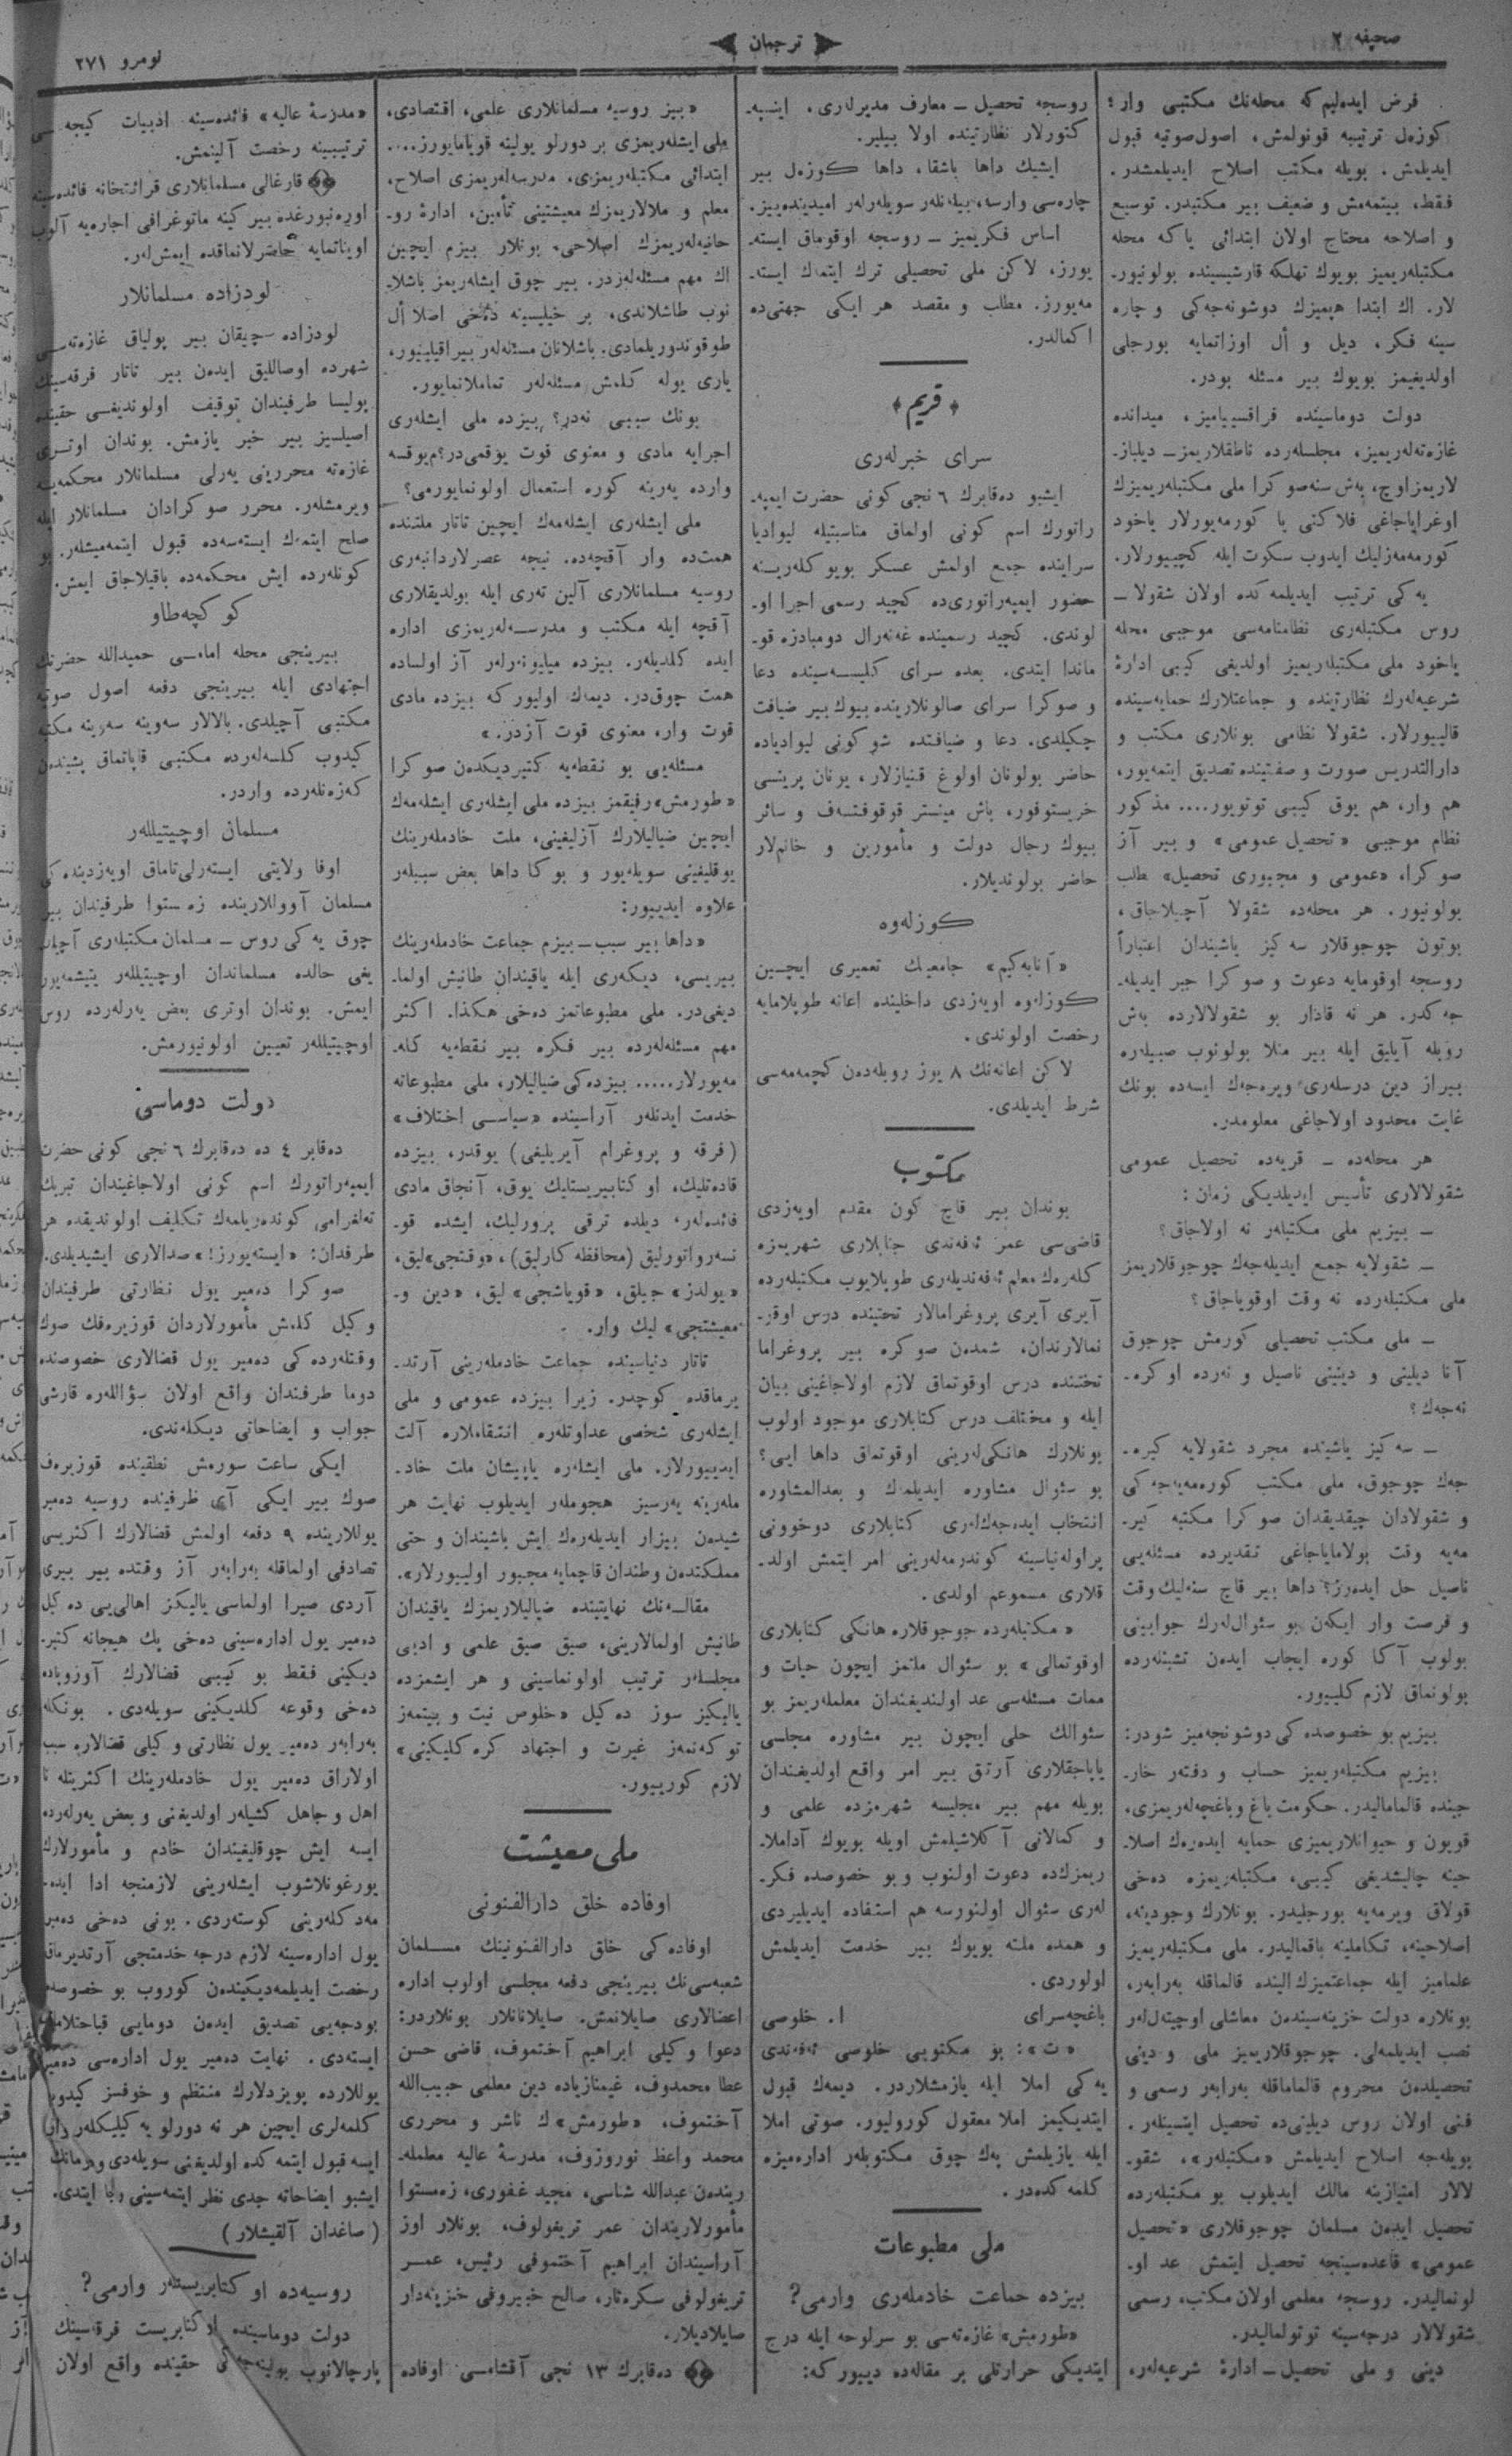 صحیفه ٢
ترجمان
نومرو ٢٧١
فرض ایده‌لیم که محله‌نك مکتبی وار؛
کوزه‌ل ترتیبه قونولمش، اصول‌صوتیه قبول
ایدیلمش. بویله مکتب اصلاح ایدیلمشدر.
فقط، بیتمه‌مش و ضعیف بیر مکتبدر. توسیع
و اصلاحه محتاج اولان ابتدائی یا که محله
مکتبله‌ریمیز بویوك تهلکه قارشیسینده بولونیور-
لار. اك ابتدا هپمیزك دوشونه‌جه‌کی و چاره
سینه فکر، دیل و أل اوزاتمایه بورجلی
اولدیغیمز بویوك بیر مسئله بودر.
دولت دوماسینده فراقسییامیز، میدانده
غازه‌ته‌له‌ریمیز، مجلسله‌رده ناطقلاریمز ــ دیلباز-
لاریمزاوچ، به‌ش سنه‌صوکرا ملی مکتبله‌ریمیزك
اوغرایاجاغی فلاکتی یا کورمه‌یورلار یاخود
کورمه‌مه‌زلیك ایدوب سکوت ایله کچییورلار.
یه‌کی ترتیب ایدیلمه‌کده اولان شقولا ــ
روس مکتبله‌ری نظامنامه‌سی موجبی محله
یاخود ملی مکتبله‌ریمیز اولدیغی کیبی ادارهٔ
شرعیه‌له‌رك نظارتینده و جماعتلارك حمایه‌سینده
قالییورلار. شقولا نظامی بونلاری مکتب و
دارالتدریس صورت و صفتینده تصدیق ایتمه‌یور،
هم وار، هم یوق کیبی توتویور.... مذکور
نظام موجبی «تحصیل عمومی» و بیر آز
صوکرا، «عمومی و مجبوری تحصیل» طلب
بولونیور. هر محله‌ده شقولا آچیلاجاق،
بوتون چوجوقلار سه‌کیز یاشیندان اعتباراً
روسجه اوقومایه دعوت و صوکرا جبر ایدیله-
جه‌کدر. هر نه قادار بو شقولالارده به‌ش
روبله آیلیق ایله بیر منلا بولونوب صبیله‌ره
بیراز دین درسله‌ری ویره‌جه‌ك ایسه‌ده بونك
غایت محدود اولاجاغی معلومدر.
هر محله‌ده ــ قریه‌ده تحصیل عمومی
شقولالاری تأسیس ایدیلدیکی زمان:
ــ بیزیم ملی مکتبله‌ر نه اولاجاق؟
ــ شقولایه جمع ایدیله‌جه‌ك چوجوقلاریمز
ملی مکتبله‌رده نه وقت اوقویاجاق؟
ــ ملی مکتب تحصیلی کورمش چوجوق
آنا دیلینی و دینینی ناصیل و نه‌رده اوکره-
نه‌جه‌ك؟
ــ سه‌کیز یاشینده مجرد شقولایه کیره-
جه‌ك چوجوق، ملی مکتب کوره‌مه‌یه‌جه‌کی
و شقولادان چیقدیقدان صوکرا مکتبه کیر-
مه‌یه وقت بولامایاجاغی تقدیرده مسئله‌یی
ناصیل حل ایده‌رز؟ داها بیر قاچ سنه‌لیك وقت
و فرصت وار ایکه‌ن بو سئوال‌له‌رك جوابینی
بولوب آکا کوره ایجاب ایده‌ن تشبثله‌رده
بولونماق لازم کلییور.
بیزیم بو خصوصده‌کی دوشونجه‌میز شودر:
بیزیم مکتبله‌ریمیز حساب و دفته‌ر خار-
جینده قالمامالیدر. حکومت باغ و باغچه‌له‌ریمزی،
قویون و حیوانلاریمیزی حمایه ایده‌ره‌ك اصلا-
حینه چالیشدیغی کیبی، مکتبله‌ریمزه ده‌خی
قولاق ویرمه‌یه بورجلیدر. بونلارك وجودینه،
اصلاحینه، تکاملینه باقمالیدر. ملی مکتبله‌ریمیز
علمامیز ایله جماعتمیزك‌الینده قالماقله به‌رابه‌ر،
بونلاره دولت خزینه‌سیندەن معاشلی اوچیته‌ل‌له‌ر
نصب ایدیلمه‌لی. چوجوقلاریمیز ملی و دینی
تحصیلدن محروم قالماماقله به‌رابه‌ر رسمی و
فنی اولان روس دیلینی‌ده تحصیل ایتسینله‌ر.
بویله‌جه اصلاح ایدیلمش «مکتبله‌ر»، شقو-
لالار امتیازینه مالك ایدیلوب بو مکتبله‌رده
تحصیل ایده‌ن مسلمان چوجوقلاری «تحصیل
عمومی» قاعده‌سینجه تحصیل ایتمش عد او-
لونمالیدر. روسجه معلمی اولان مکتب، رسمی
شقولالار درجه‌سینه توتولمالیدر.
دینی و ملی تحصیل ــ ادارهٔ شرعیه‌له‌ر،
روسجه تحصیل ــ معارف مدیرله‌ری، اینسپه-
کتورلار نظارتینده اولا بیلیر.
ایشیك داها باشقا، داها کوزه‌ل بیر
چاره‌سی وارسه، بیله‌نله‌ر سویله‌رله‌ر امیدینده‌بیز.
اساس فکریمیز ــ روسجه اوقوماق ایسته-
یورز، لاکن ملی تحصیلی ترك ایتمه‌ك ایسته-
مه‌یورز. مطلب و مقصد هر ایکی جهتی‌ده
اکمالدر.
﴿ قریم ﴾
سرای خبرله‌ری
ایشبو ده‌قابرك ٦ نجی کونی حضرت ایمپه-
راتورك اسم کونی اولماق مناسبتیله لیوادیا
سراینده جمع اولمش عسکر بویوکله‌رینه
حضور ایمپه‌راتوری‌ده کچید رسمی اجرا او-
لوندی. کچید رسمینده غه‌نه‌رال دومبادزه قو-
ماندا ایتدی. بعده سرای کلیسه‌سینده دعا
و صوکرا سرای صالونلارینده بیوك بیر ضیافت
چکیلدی. دعا و ضیافتده شو کونی لیوادیاده
حاضر بولونان اولوغ قنیازلار، یونان پرینسی
خریستوفور، باش مینستر قوقوفتسه‌ف و سائر
بیوك رجال دولت و مأمورین و خانم‌لار
حاضر بولوندیلار.
کوزله‌وه
«آتابه‌کیم» جامعینك تعمیری ایچین
کوزله‌وه اویه‌زدی داخلینده اعانه طوپلامایه
رخصت اولوندی.
لاکن اعانه‌نك ٨ یوز روبله‌دەن کچمه‌مه‌سی
شرط ایدیلدی.
مکتوب
بوندان بیر قاچ کون مقدم اویه‌زدی
قاضی‌سی عمر ئه‌فه‌ندی جنابلاری شهریمزه
کله‌ره‌ك معلم ئه‌فه‌ندیله‌ری طوپلایوب مکتبله‌رده
آیری آیری پروغرامالار تحتینده درس اوقو-
نمالارندان، شمدەن صوکره بیر پروغراما
تحتنده درس اوقوتماق لازم اولاجاغینی بیان
ایله و مختلف درس کتابلاری موجود اولوب
بونلارك هانکی‌له‌رینی اوقوتماق داها ایی؟
بو سئوال مشاوره ایدیلمك و بعدالمشاوره
انتخاب ایده‌جه‌ك‌له‌ری کتابلاری دوخوونی
پراوله‌نیاسینه کوندرمه‌له‌رینی امر ایتمش اولد-
قلاری مسموعم اولدی.
«مکتبله‌رده چوجوقلاره هانکی کتابلاری
اوقوتمالی» بو سئوال ملتمز ایچون حیات و
ممات مسئله‌سی عد اولندیغندان معلمله‌ریمز بو
سئوالك حلی ایچون بیر مشاوره مجلسی
یاپاجقلاری آرتق بیر امر واقع اولدیغندان
بویله مهم بیر مجلیسه شهرمزده علمی و
و کمالاتی آکلاشیلمش اویله بویوك آداملا-
ریمزك‌ده دعوت اولنوب و بو خصوصده فکر-
له‌ری سئوال اولنورسه هم استفاده ایدیلیردی
و همده ملته بویوك بیر خدمت ایدیلمش
اولوردی.
باغچه‌سرای ا. خلوصی
«ت»: بو مکتوبی خلوصی ئه‌فه‌ندی
یه‌کی املا ایله یازمشلاردر. دیمه‌ك قبول
ایتدیکیمز املا معقول کورولیور. صوتی املا
ایله یازیلمش په‌ك چوق مکتوبله‌ر اداره‌میزه
کلمه‌کده‌در.
ملی مطبوعات
بیزده جماعت خادمله‌ری وارمی؟
«طورمش» غازه‌ته‌سی بو سرلوحه ایله درج
ایتدیکی حرارتلی بر مقاله‌ده دییور که:
«بیز روسیه مسلمانلاری علمی، اقتصادی،
ملی ایشله‌ریمزی بر دورلو یولینه قویامایورز....
ابتدائی مکتبله‌ریمزی، مدرسه‌له‌ریمزی اصلاح،
معلم و ملالاریمزك معیشتینی تأمین، ادارهٔ رو-
حانیه‌له‌ریمزك اصلاحی، بونلار بیزم ایچین
اك مهم مسئله‌له‌رد‌ر. بیر چوق ایشله‌ریمز باشلا-
نوب طاشلاندی، بر خیلیسینه ده‌خی اصلا أل
طوقوندوریلمادی. باشلانان مسئله‌له‌ر بیراقیلییور،
یاری یوله کلمش مسئله‌له‌ر تماملانمایور.
بونك سببی نه‌در؟ بیزده ملی ایشله‌ری
اجرایه مادی و معنوی قوت یوقمی‌در؟م‌یوقسه
وارده یه‌رینه کوره استعمال اولونمایورمی؟
ملی ایشله‌ری ایشله‌مه‌ك ایچین تاتار ملتنده
همت‌ده وار آقچه‌ده. نیچه عصرلاردانبه‌ری
روسیه مسلمانلاری آلین ته‌ری ایله بولدیقلاری
آقچه ایله مکتب و مدرسه‌له‌ریمزی اداره
ایده کلدیله‌ر. بیزده میلیونه‌رله‌ر آز اولساده
همت چوق‌در. دیمه‌ك اولیور که بیزده مادی
قوت وار، معنوی قوت آزدر.»
مسئله‌یی بو نقطه‌یه کتیردیکدەن صوکرا
«طورمش» رفیقمز بیزده ملی ایشله‌ری ایشله‌مه‌ك
ایچین ضیالیلارك آزلیغینی، ملت خادمله‌رینك
یوقلیغینی سویله‌یور و بوکا داها بعض سببله‌ر
علاوه ایدییور:
«داها بیر سبب ــ بیزم جماعت خادمله‌رینك
بیریسی، دیکه‌ری ایله یاقیندان طانیش اولما-
دیغی‌در. ملی مطبوعاتمز ده‌خی هکذا. اکثر
مهم مسئله‌له‌رده بیر فکره بیر نقطه‌یه کله-
مه‌یورلار..... بیزده‌کی ضیالیلار، ملی مطبوعاته
خدمت ایدنله‌ر آراسینده «سیاسی اختلاف»
(فرقه و پروغرام آیریلیغی) یوقدر، بیزده
قاده‌تلیك، اوکتابیریستلیك یوق، آنجاق مادی
فائده‌له‌ر، دیلده ترقی پرورلیك، ایشده قو-
نسه‌رواتورلیق (محافظه کارلیق)، «وقتجی»لیق،
«یولدز» جیلق، «قویاشجی» لیق، «دین و-
معیشتجی» لیك وار.
تاتار دنیاسینده جماعت خادمله‌رینی آرتد-
یرماقده کوچدر. زیرا بیزده عمومی و ملی
ایشله‌ری شخصی عداوتله‌ره انتقامله‌ره آلت
ایدییورلار. ملی ایشله‌ره یاپیشان ملت خاد-
مله‌رینه یه‌رسیز هجومله‌ر ایدیلوب نهایت هر
شیدەن بیزار ایدیله‌ره‌ك ایش باشیندان و حتی
مملکتدەن وطندان قاچمایه مجبور اولییورلار».
مقاله‌نك نهایتینده ضیالیلاریمزك یاقیندان
طانیش اولمالارینی، صیق صیق علمی و ادبی
مجلسله‌ر ترتیب اولونماسینی و هر ایشمزده
یالیکیز سوز ده‌کیل «خلوص نیت و بیتمه‌ز
توکه‌نمه‌ز غیرت و اجتهاد کره‌کلیکینی»
لازم کورییور.
ملی معیشت
اوفاده خلق دارالفنونی
اوفاده‌کی خلق دارالفنونینك مسلمان
شعبه‌سی‌نك بیرینجی دفعه مجلسی اولوب اداره
اعضالاری صایلانمش. صایلانانلار بونلاردر:
دعوا وکیلی ابراهیم آختموف، قاضی حسن
عطا محمدوف، غیمنازیاده دین معلمی حبیب‌الله
آختموف، «طورمش» ك ناشر و محرری
محمد واعظ نوروزوف، مدرسهٔ عالیه معلمله-
ریندەن عبدالله شناسی، مجید غفوری، زه‌مستوا
مأمورلاریندان عمر تریغولوف، بونلار اوز
آراسیندان ابراهیم آختموفی رئیس، عمر
تریغولوفی سکره‌تار، صالح خبیروفی خزینه‌دار
صایلادیلار.
ده‌قابرك ١٣ نجی آقشامی اوفاده
«مدرسهٔ عالیه» فائده‌سینه ادبیات کیجه‌سی
ترتیبینه رخصت آلینمش.
قارغالی مسلمانلاری قرائتخانه فائده‌سینه
اوره‌نبورغده بیر کینه ماتوغرافی اجاره‌یه آلوب
اویناتمایه حاضرلانماقده ایمش‌له‌ر.
لودزاده مسلمانلار
لودزاده چیقان بیر پولیاق غازه‌ته‌سی
شهرده اوصاللیق ایده‌ن بیر تاتار فرقه‌سینك
پولیسا طرفیندان توقیف اولوندیغی حقینده
اصیلسیز بیر خبر یازمش. بوندان اوتری
غازه‌ته محررینی یه‌رلی مسلمانلار محکمه‌یه
ویرمشله‌ر. محرر صوکرادان مسلمانلار ایله
صلح ایتمه‌ك ایسته‌سه‌ده قبول ایتمه‌میشله‌ر. بو
کونله‌رده ایش محکمه‌ده باقیلاجاق ایمش.
کوکچه‌طاو
بیرینجی محله امامی حمیدالله حضرتك
اجتهادی ایله بیرینجی دفعه اصول صوتیه
مکتبی آچیلدی. بالالار سه‌وینه سه‌وینه مکتبه
کیدوب کلسه‌له‌رده مکتبی قاپاتماق پشیندەن
که‌زه‌نله‌رده واردر.
مسلمان اوچیتیللەر
اوفا ولایتی ایسته‌رلی‌تاماق اویه‌زدینده‌کی
مسلمان آووللارینده زه‌مستوا طرفیندان بیر
چوق یه‌کی روس ــ مسلمان مکتبله‌ری آچیلا-
یغی حالده مسلماندان اوچیتیلله‌ر یتیشمه‌یور
ایمش. بوندان اوتری بعض یه‌رله‌رده روس
اوچیتیلله‌ر تعیین اولونیورمش.
دولت دوماسی
ده‌قابر ٤ ده ده‌قابرك ٦ نجی کونی حضرت
ایمپه‌راتورك اسم کونی اولاجاغیندان تبریك
ته‌لغرامی کونده‌ریلمه‌ك تکلیف اولوندیقده هر
طرفدان: «ایسته‌یورز!» صدالاری ایشیدیلدی.
صوکرا ده‌میر یول نظارتی طرفیندان
وکیل کلمش مأمورلاردان قوزیره‌فك صوك
وقتله‌رده‌کی ده‌میر یول قضالاری خصوصنده
دوما طرفندان واقع اولان سؤاللەره قارشی
جواب و ایضاحاتی دیکله‌ندی.
ایکی ساعت سورمش نطقینده قوزیره‌ف
صوك بیر ایکی آی ظرفینده روسیه ده‌میر
یوللارینده ٩ دفعه اولمش قضالارك اکثریسی
تصادفی اولماقله به‌رابه‌ر آز وقتده بیر بیری
آردی صیرا اولماسی یالیکز اهالی‌یی ده‌کیل
ده‌میر یول اداره‌سینی ده‌خی پك هیجانه کتیر-
دیکینی فقط بو کیبی قضالارك آوروپاده
ده‌خی وقوعه کلدیکینی سویله‌دی. بونکله
به‌رابه‌ر ده‌میر یول نظارتی وکیلی قضالاره سبب
اولاراق ده‌میر یول خادمله‌رینك اکثریتله نا
اهل و جاهل کشیله‌ر اولدیغنی و بعض یه‌رله‌رده
ایسه ایش چوقلیغیندان خادم و مأمورلارك
یورغونلاشوب ایشله‌رینی لازمنجه ادا ایده-
مه‌دکله‌رینی کوسته‌ردی. بونی ده‌خی ده‌میر
یول اداره‌سینه لازم درجه خدمتجی آرتدیرماقه
رخصت ایدیلمه‌دیکیندەن کوروب بو خصوصده
بودجه‌یی تصدیق ایده‌ن دومایی قباحتلامق
ایسته‌دی. نهایت ده‌میر یول اداره‌سی ده‌میر
یوللارده پویزدلارك منتظم و خوفسز کیدوب
کلمه‌لری ایچین هر نه دورلو یه‌کیلیکله‌ر وار
ایسه قبول ایتمه‌کده اولدیغنی سویله‌دی ودومانك
ایشبو ایضاحاته جدی نظر ایتمه‌سینی رجا ایتدی.
(صاغدان آلقیشلار)
روسیه‌ده اوکتابریستله‌ر وارمی؟
دولت دوماسینده اوکتابریست فرقه‌سینك
پارچالانوب بولینه‌جه‌کی حقینده واقع اولان